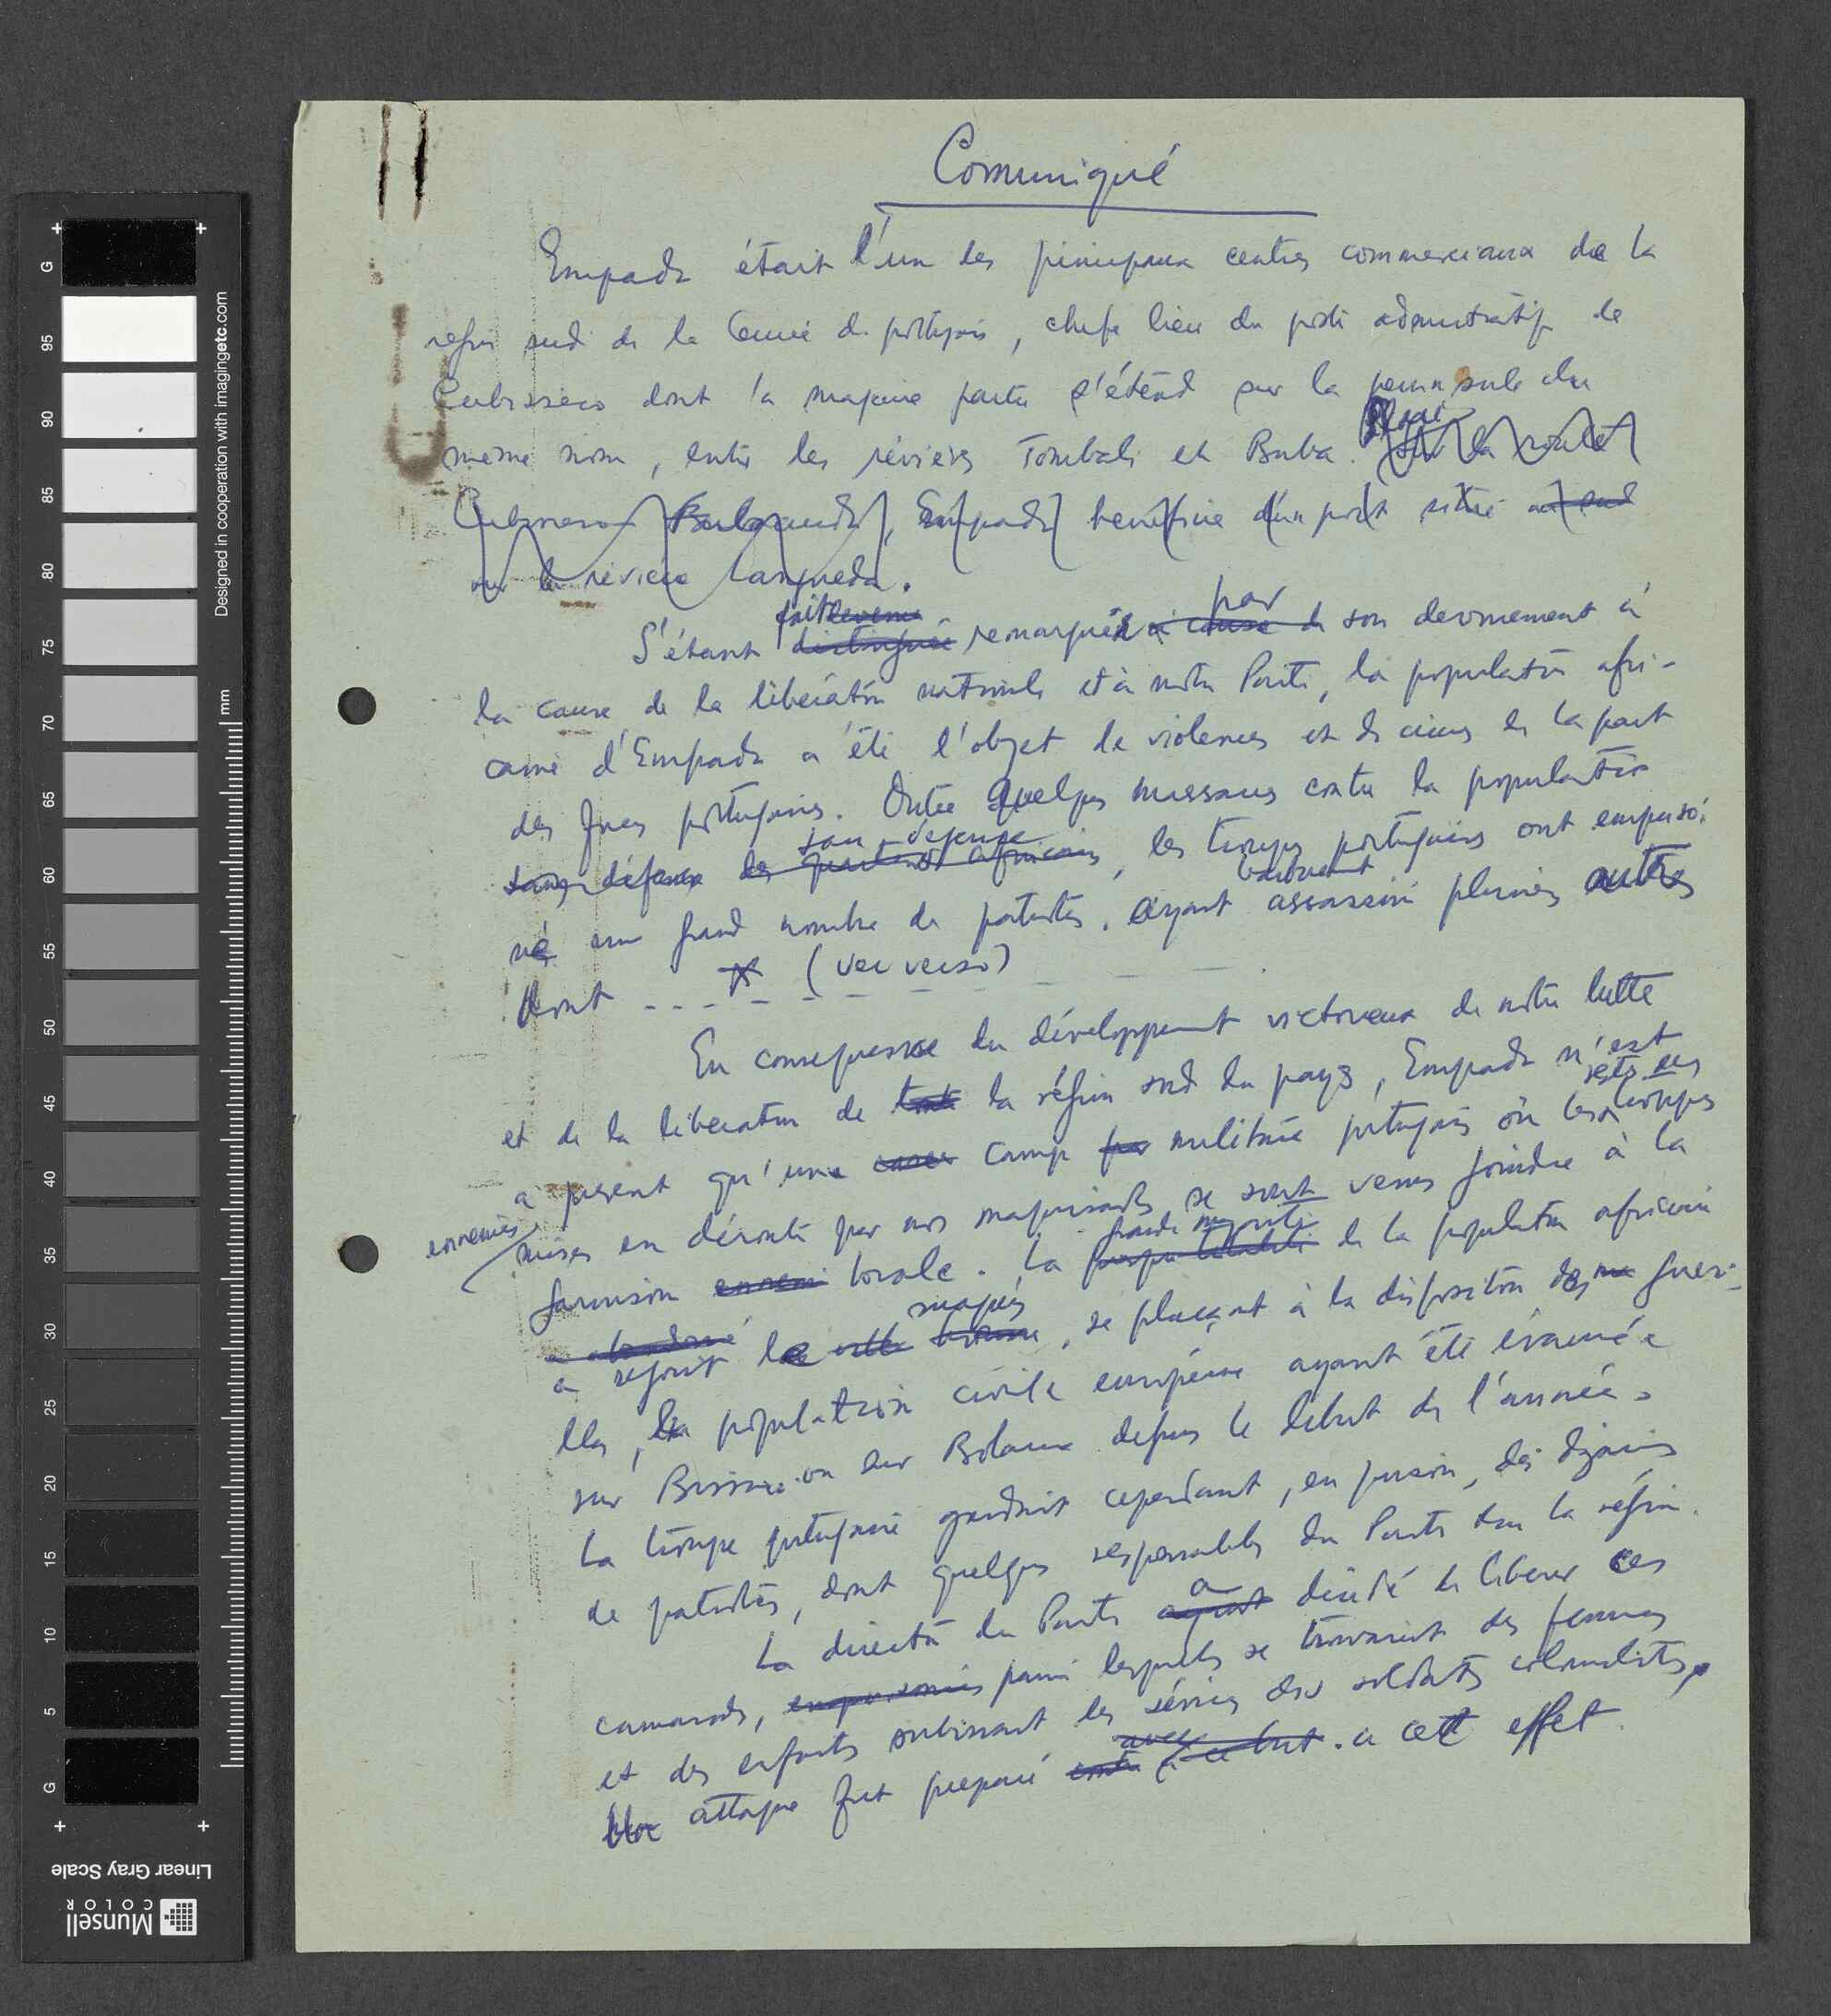 Comuniqué
Empada était l'un des principaux centres commerciaux de la
région sud de la Guinée dite portugaise, chef lieu du poste administratif de
Cubisseco dont la majeure partie s'étend sur la peninsule du
même nom, entre les rivières Tombali et Buba. Sur la route
Cubisseco, Empada bénéficie d'un port situé au sud
sur la rivière
fait devenu par
S'étant distinguée remarquée à cause de son devouement à
la cause de la libération nationale et à notre Parti, la population afri-
caine d'Empada a été l'objet de violences et de crimes de la part
des forces portugaises. Outre quelques massacres contre la population
sans défense
sans défense des quartiers africains, les troupes portugaises ont emprison-
né un grand nombre de patriotes, ayant assassiné plusieurs autres
dont - - - * (voir verso) - - -
En consequence du développement victorieux de notre lutte
et de la liberation de toute la région sud du pays, Empada n'est
à present qu'une camp militaire portugais où les restes des troupes
ennemies
mises en déroute par nos maquisards se sont venus joindre à la
garnison ennemi locale. La grande majorité de la population africaine
a abandonné
a rejoint le maquis, se plaçant à la disposition des guéri-
llas, la population civile européenne ayant été évacuée
sur Bissau ou sur Bolama depuis le début de l'année.
La troupe portugaise gardait cependant, en prison, des dizaines
de patriotes, dont quelques responsables du Parti dans la région.
La direction du Parti ayant a décidé de liberer ces
camarades, emprisonnés parmi lesquels se trouvaient des femmes
et des enfants subissant les sévices des soldats colonialistes,
Une attaque fut preparé avec ce but. a cet effet.